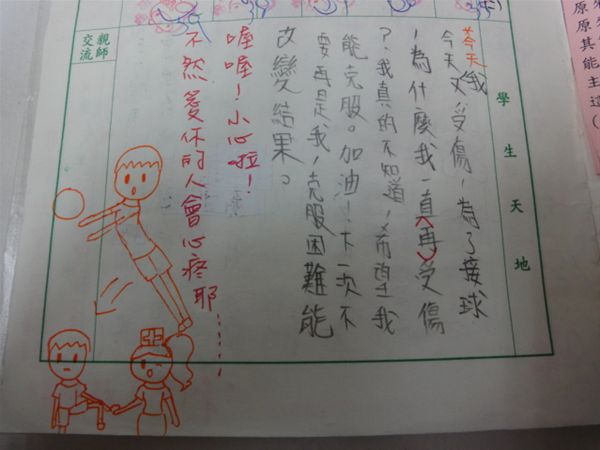 原原其能主造(
學生天地
今天我又受傷,為了接球
,為什麼我一直再受傷
?我真的不知道,希望我
能克服。加油!下次不
要再是我,克服困難能
改變結果。
喔喔!小心啦!
不然愛你的人會心疼耶......
親師
交流